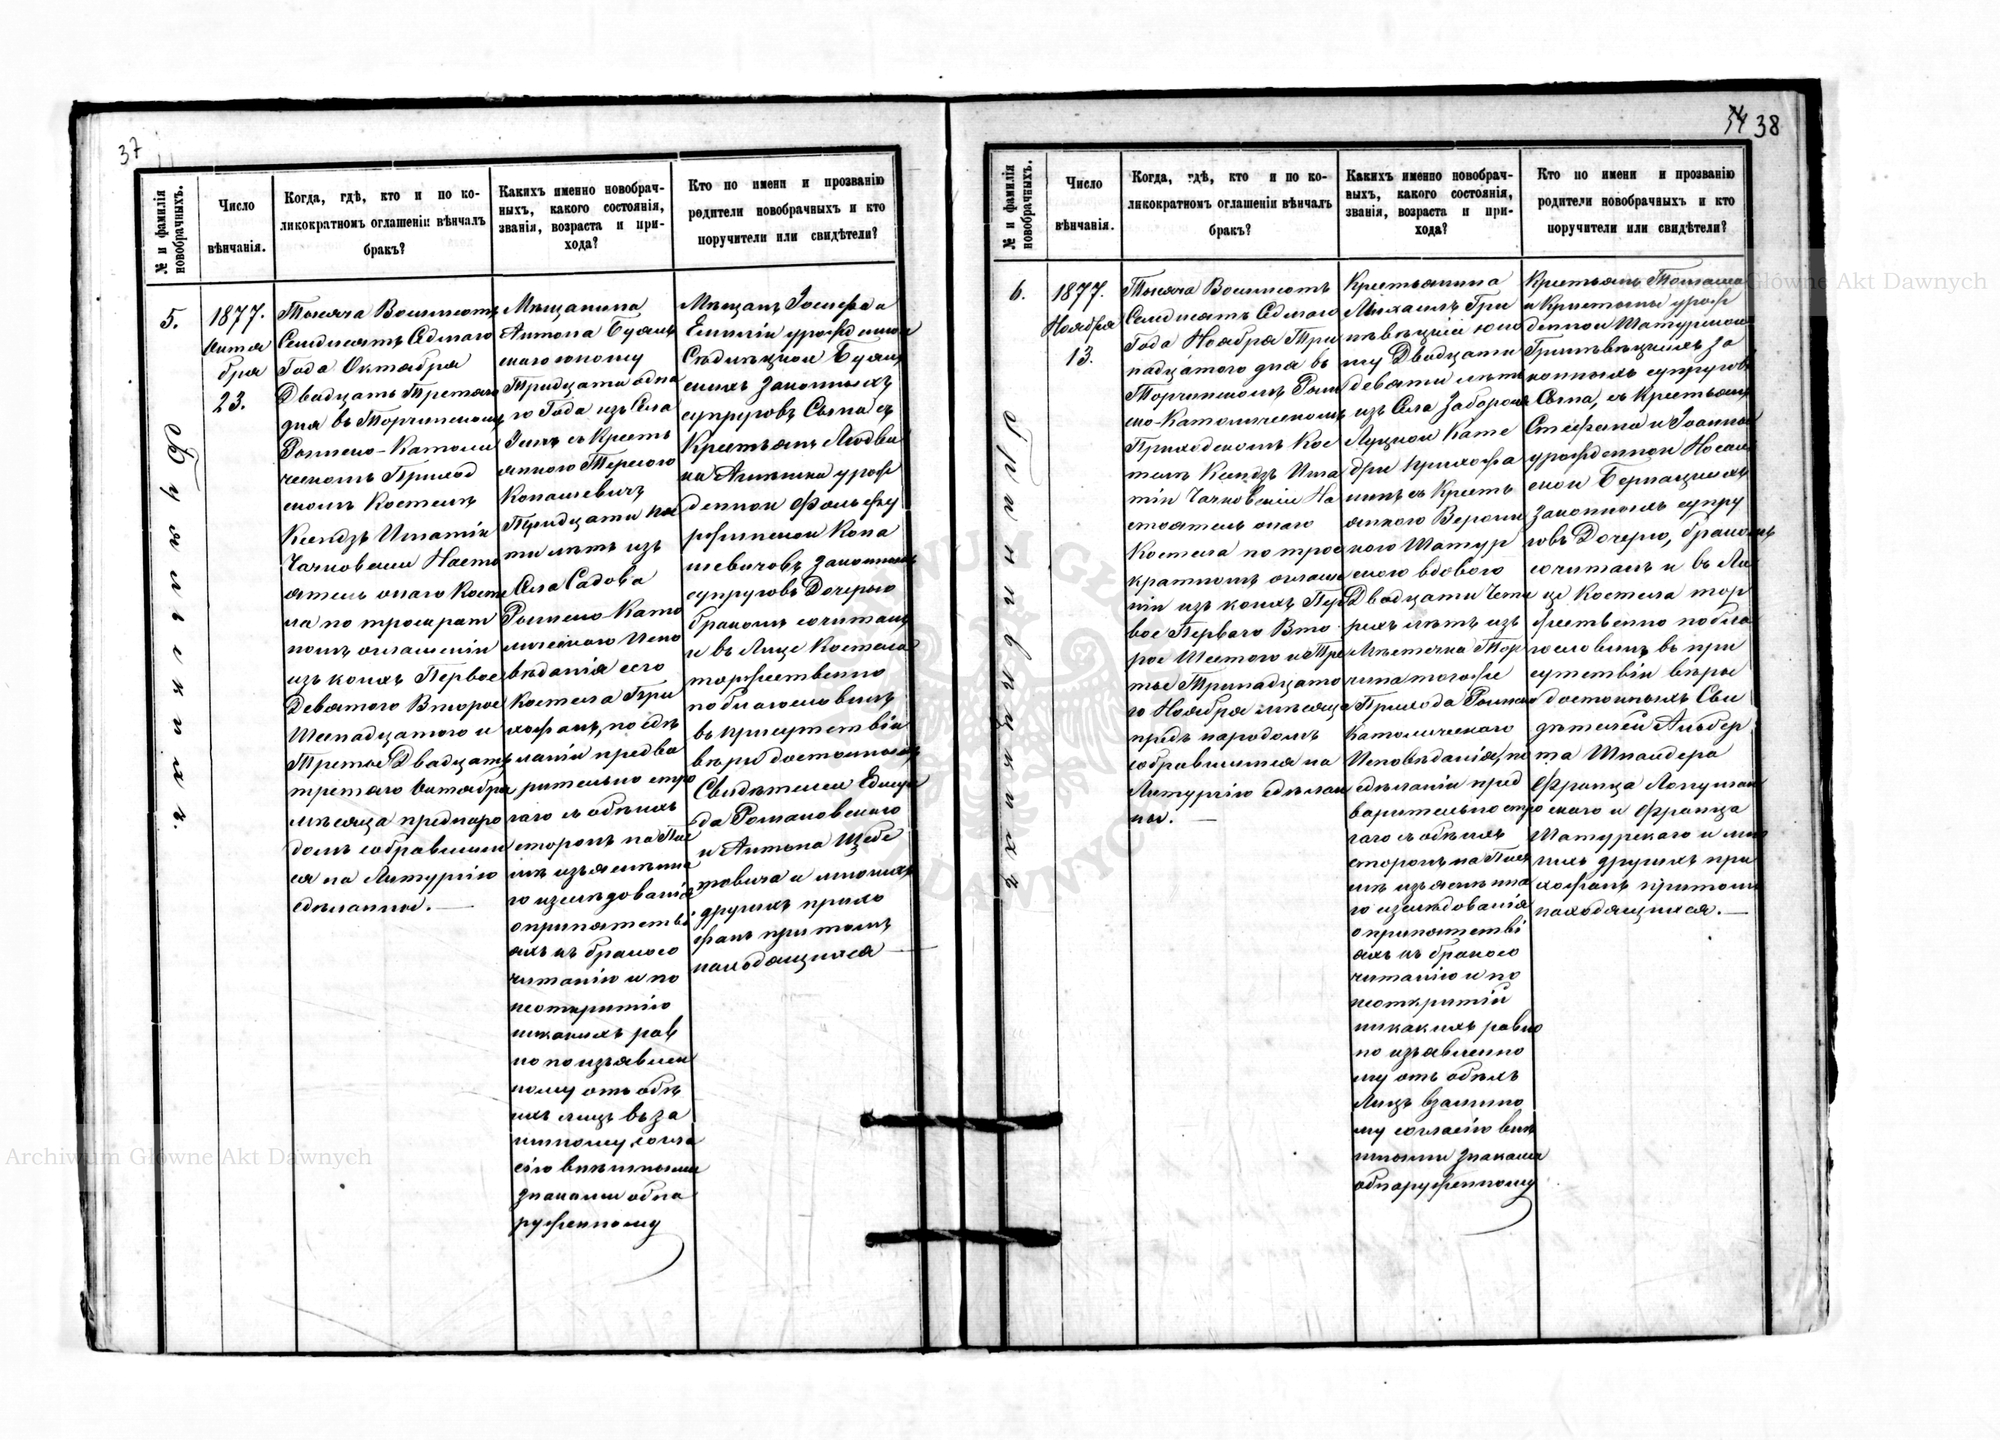 37
№ и фамилія новобрачныхъ.
Число вѣнчанія.
Когда, гдѣ, кто и по ко-
ликократномъ оглашеніи вѣнчалъ
бракъ?
Какихъ именно новобрач-
ныхъ, какого состоянія,
званія, возраста и при-
хода?
Кто по имени и прозванію
родители новобрачныхъ и кто
поручители или свидѣтели?
5.
1877.
Октя
бря
23.
Тысяча Восемсотъ
Семдисятъ Седмаго
Года Октября
Двадцать Третяго
дня въ Торчинскомъ
Римско-Католи
ческомъ Приход
скомъ Костелѣ
Ксендзъ Игнатій
Чачковскій Насто
ятель онаго Косте
ла по троекрат
номъ оглашеніи
изъ коихъ Первое
Девятого Второе
Шеснадцатого и
Третье Двадцать
третяго Октября
мѣсяца предъ наро
домъ собравшим
ся на Литургію
сдѣланныя.
Мѣщанина
Антона Буяль
скаго юному
Тридцати одна
го Года изъ Села
съ Кресть
янкою Тересою
Конашевичъ
Тридцати пя
ти лѣтъ изъ
Села Садова
Римско-Като
лическаго Испо
вѣданія сего
Костела При
хожанъ, по сдѣ
ланіи предва
рительно стро
гаго съ обѣихъ
сторонъ на Пис
мѣ изъяснѣнна
го изслѣдованія
о препятстві
яхъ къ бракосо
читанію и по
неоткритію
никакихъ рав
но по изъявлен
ному отъ обѣ
ихъ лицъ вьза
имному согла
сію внѣшными
знаками обна
руженному
Мѣщанъ Іосифа и
Емиліи урожденной
Буяль
скихъ законныхъ
супруговъ Сына съ
Крестьянъ Людви
ка Агнѣшки урож
денной
Кона
шевичовъ Законныхъ
супруговъ Дочерью
бракомъ сочиталъ
и въ Лице Костела
торжественно
поблагословилъ
въ присутствіи
вѣри достойныхъ
Свидѣтелей Едмун
да Романовскаго
и Антона Щебе
товича и многихъ
другихъ прихо
жанъ при томъ
находящихся
38
№ и фамилія новобрачныхъ.
Число вѣнчанія.
Когда, гдѣ, кто и по ко-
ликократномъ оглашеніи вѣнчалъ
бракъ?
Какихъ именно новобрач-
ныхъ, какого состоянія,
званія, возраста и при-
хода?
Кто по имени и прозванію
родители новобрачныхъ и кто
поручители или свидѣтели?
6.
1877.
Ноября
13.
Тысяча Восемсотъ
Семдисятъ Седмаго
Года Ноября Три
надцатого дня въ
Торчинскомъ Рим
ско-Католическомъ
Приходскомъ Кос
телѣ Ксендзъ Игна
тій Чачковскій На
стоятель онаго
Костела по трое
кратномъ оглаше
ніи изъ коихъ Пер
вое Перваго Вто
рое Шестого и Тре
тье Тринадцато
го Ноября мѣсяца
предъ народомъ
собравшимся на
Литургію сдѣлан
ныя.
Крестьянина
Михаилъ Гри
невѣцкій юно
му Двадцати
девяти лѣтъ
изъ Села Забороля
Луцкой Кате
дри прихожа
нинъ съ Кресть
янкою Верони
кою Шатур
скою вдовою
Двадцати Чети
рехъ лѣтъ изъ
Мѣстечка Тор
чина тогоже
Прихода Римско
Католическаго
Исповѣданія, по
сдѣланіи пред
варительно стро
гаго съ обѣихъ
сторонъ на Пись
мѣ изъяснѣнна
го изслѣдованія
о препятстві
яхъ къ бракосо
читанію и по
неоткритій
никакихъ равно
по изъявленно
му отъ обѣихъ
Лицъ взаимно
му согласію внѣ
шными знаками
обнаруженному
Крестьянъ Томаша
и Кристыны урож
денной Шатурской
Гриневѣцкихъ за
конныхъ супруговъ
Сына, съ Крестьянъ
Стефана и Іоанны
урожденной
законныхъ супру
говъ Дочерю, бракомъ
сочиталъ и въ Ли
це Костела тор
жественно побла
гословилъ въ при
сутствіи вѣры
достойныхъ Сви
дѣтелей Альбер
та Шнайдера
Франца
и Франца
Шатурскаго и мно
гихъ другихъ при
хожанъ при томъ
находящихся.
Archiwum Główne Akt Dawnych
Główne Akt Dawnych